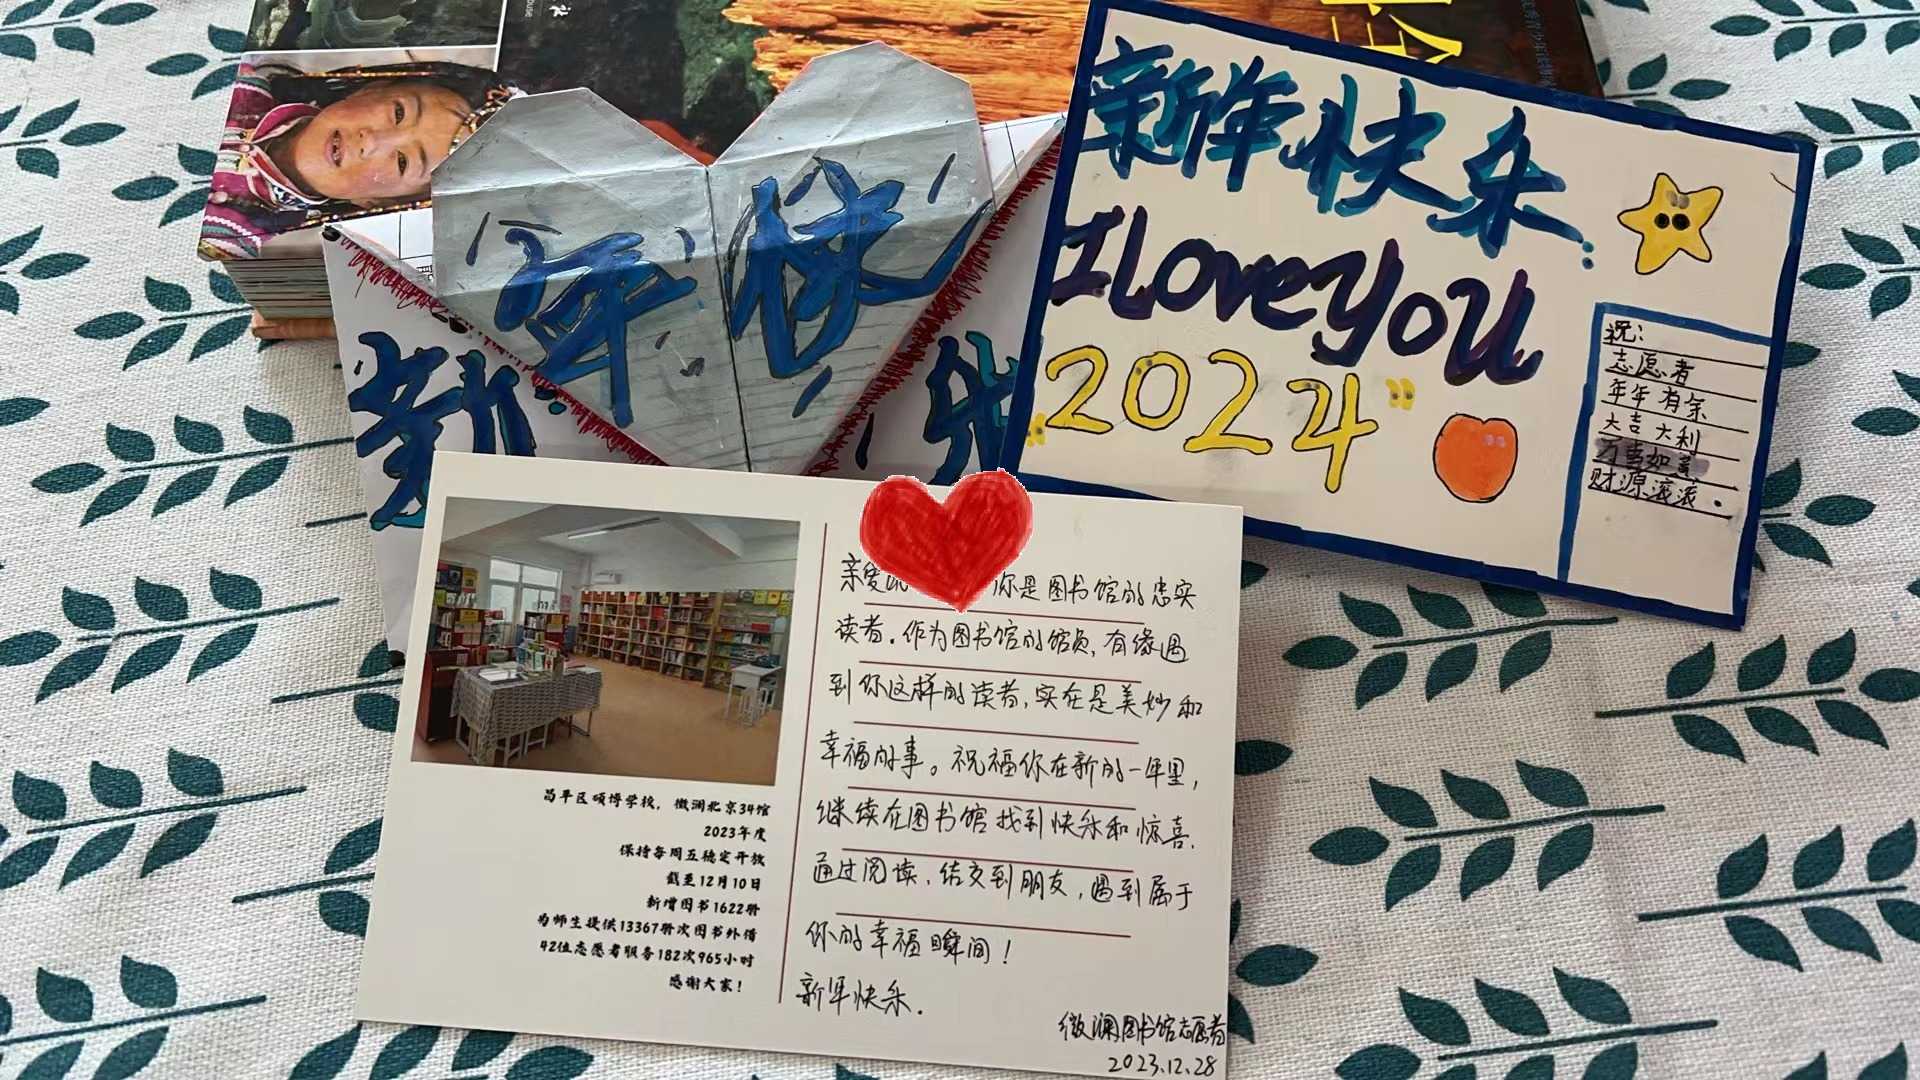 新年快乐
I love you
2024
祝：
志愿者
年年有余
大吉大利
万事如意
财源滚滚。
年快
新
乐
昌平区硕博学校，微澜北京34馆
2023年度
保持每周五稳定开放
截至12月10日
新增图书1622册
为师生提供13367册次图书外借
42位志愿者服务182次965小时
感谢大家！
亲爱的 你是图书馆的忠实
读者。作为图书馆的馆员，有缘遇
到你这样的读者，实在是美妙和
幸福的事。祝福你在新的一年里，
继续在图书馆找到快乐和惊喜。
通过阅读，结交到朋友，遇到属于
你的幸福瞬间！
新年快乐．
微澜图书馆志愿者
2023.12.28